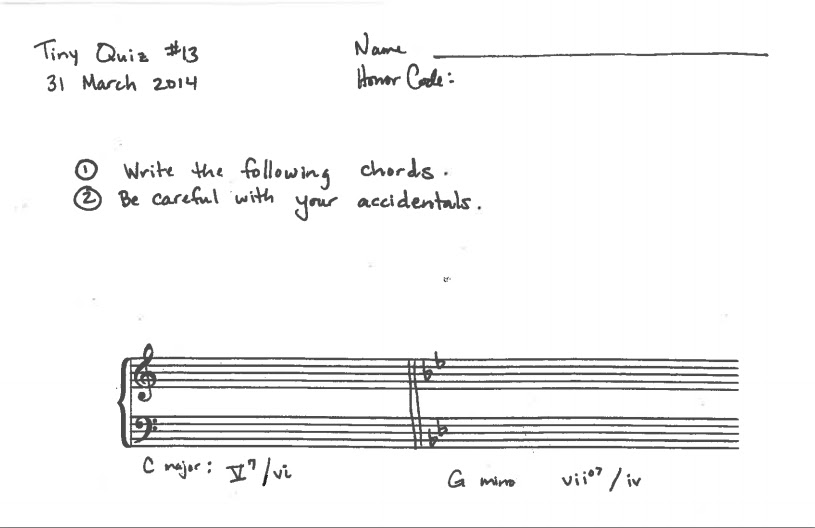 Tiny Quiz #13
31 March 2014
Name
Honor Code:
① Write the following chords.
② Be careful with your accidentals.
C major: V⁷/vi
G mino vii°⁷/iv